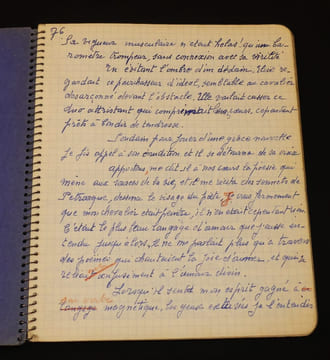 76
Sa vigueur musculaire n'était hélas! qu'un ba-
romètre trompeur, sans connexion avec sa virilité.
En évitant l'ombre d'un dédain, Elise re-
gardait ce pourchasseur d'idéal, semblable au cavalier
désarçonné devant l'obstacle. Elle voulait casser ce
duo attristant qui comprimait les cœurs, cependant
prête à fondre de tendresse.
Soudain pour jouer d'une grâce nouvelle
Je fis appel à son érudition et il se détourna de sa voie
apporta nos cœurs la poésie qui
mène aux sources de la vie, et me récita des sonnets de
Pétrarque, dessina le visage du poète. Je veux fermement
que mon chevalier était peintre, il n'en était cependant rien.
C'était le plus beau langage d'amour que j'aie en-
tendu jusqu'alors, il ne me parlait plus qu'à travers
des poèmes qui chantaient la joie d'aimer, et qui
confusément à l'amour divin.
Lorsqu'il sentit mon esprit gagné à
langage magnétique, les yeux extasiés, je l'entendis